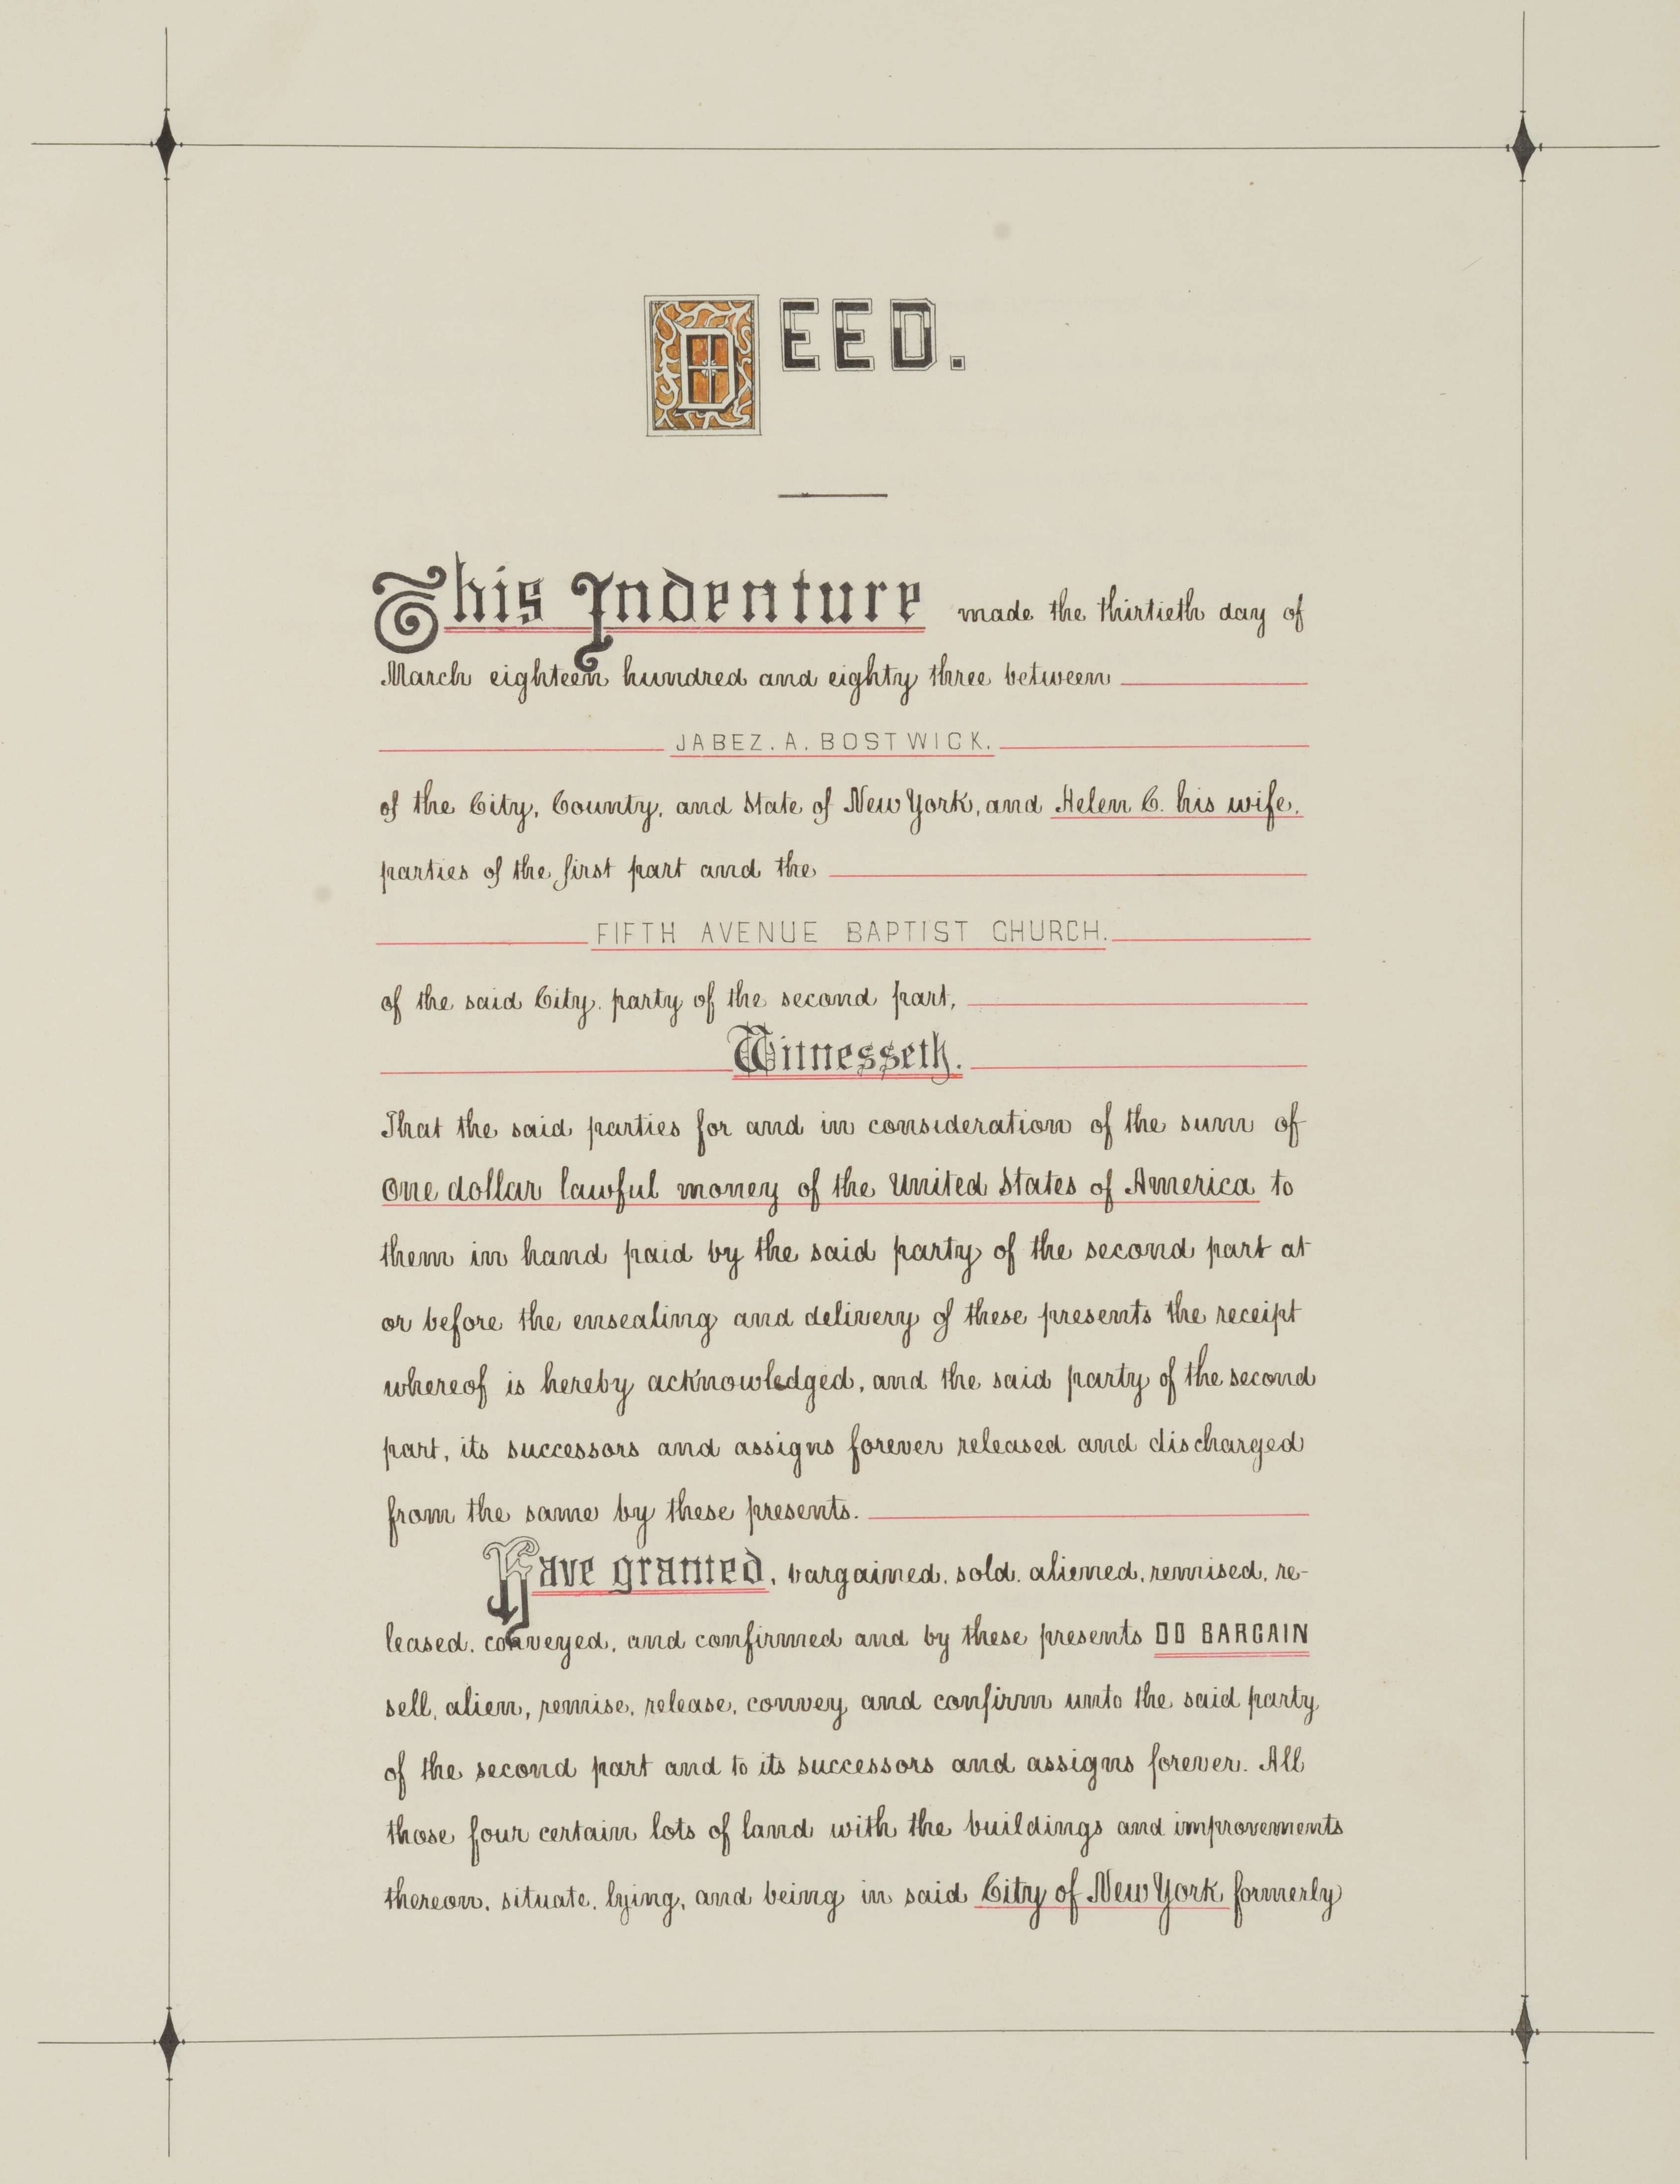 DEED.
This Indenture made the thirtieth day of
March eighteen hundred and eighty three between
JABEZ. A. BOSTWICK.
of the City, County, and State of New York, and Helen C. his wife,
parties of the first part and the
FIFTH AVENUE BAPTIST CHURCH.
of the said City. party of the second part,
Witnesseth.
That the said parties for and in consideration of the sum of
One dollar lawful money of the United States of America to
them in hand paid by the said party of the second part at
or before the ensealing and delivery of these presents the receipt
whereof is hereby acknowledged, and the said party of the second
part, its successors and assigns forever released and discharged
from the same by these presents.
Have granted, bargained, sold, aliened, remised, re-
leased, conveyed, and confirmed and by these presents DO BARGAIN
sell, alien, remise, release, convey and confirm unto the said party
of the second part and to its successors and assigns forever. All
those four certain lots of land with the buildings and improvements
thereon, situate, lying, and being in said City of New York formerly